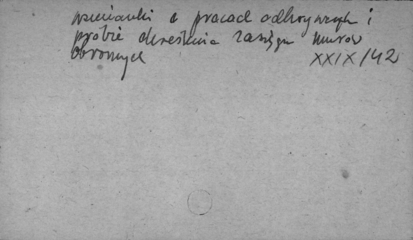 wzmianki o pracach odkrywczych i
próbie określenia zasięgu murów
obronnych XXIX/42